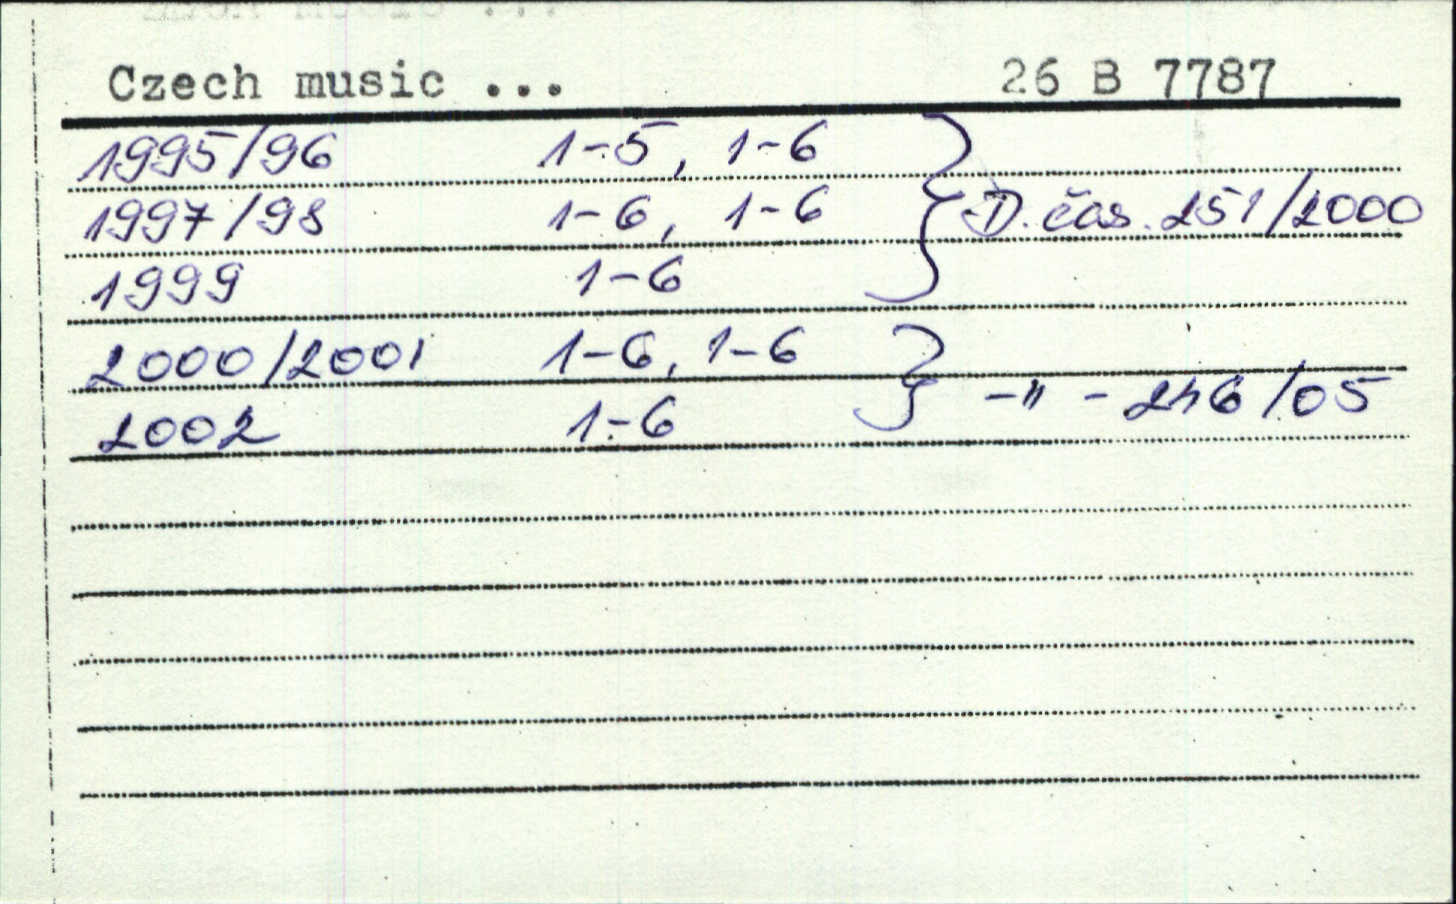 Czech music ... 26 B 7787
1995/96 1-5, 1-6
1997/98 1-6, 1-6 } D. čas. 251/2000
1999 1-6
2000/2001 1-6, 1-6
2002 1-6 } -"- 246/05